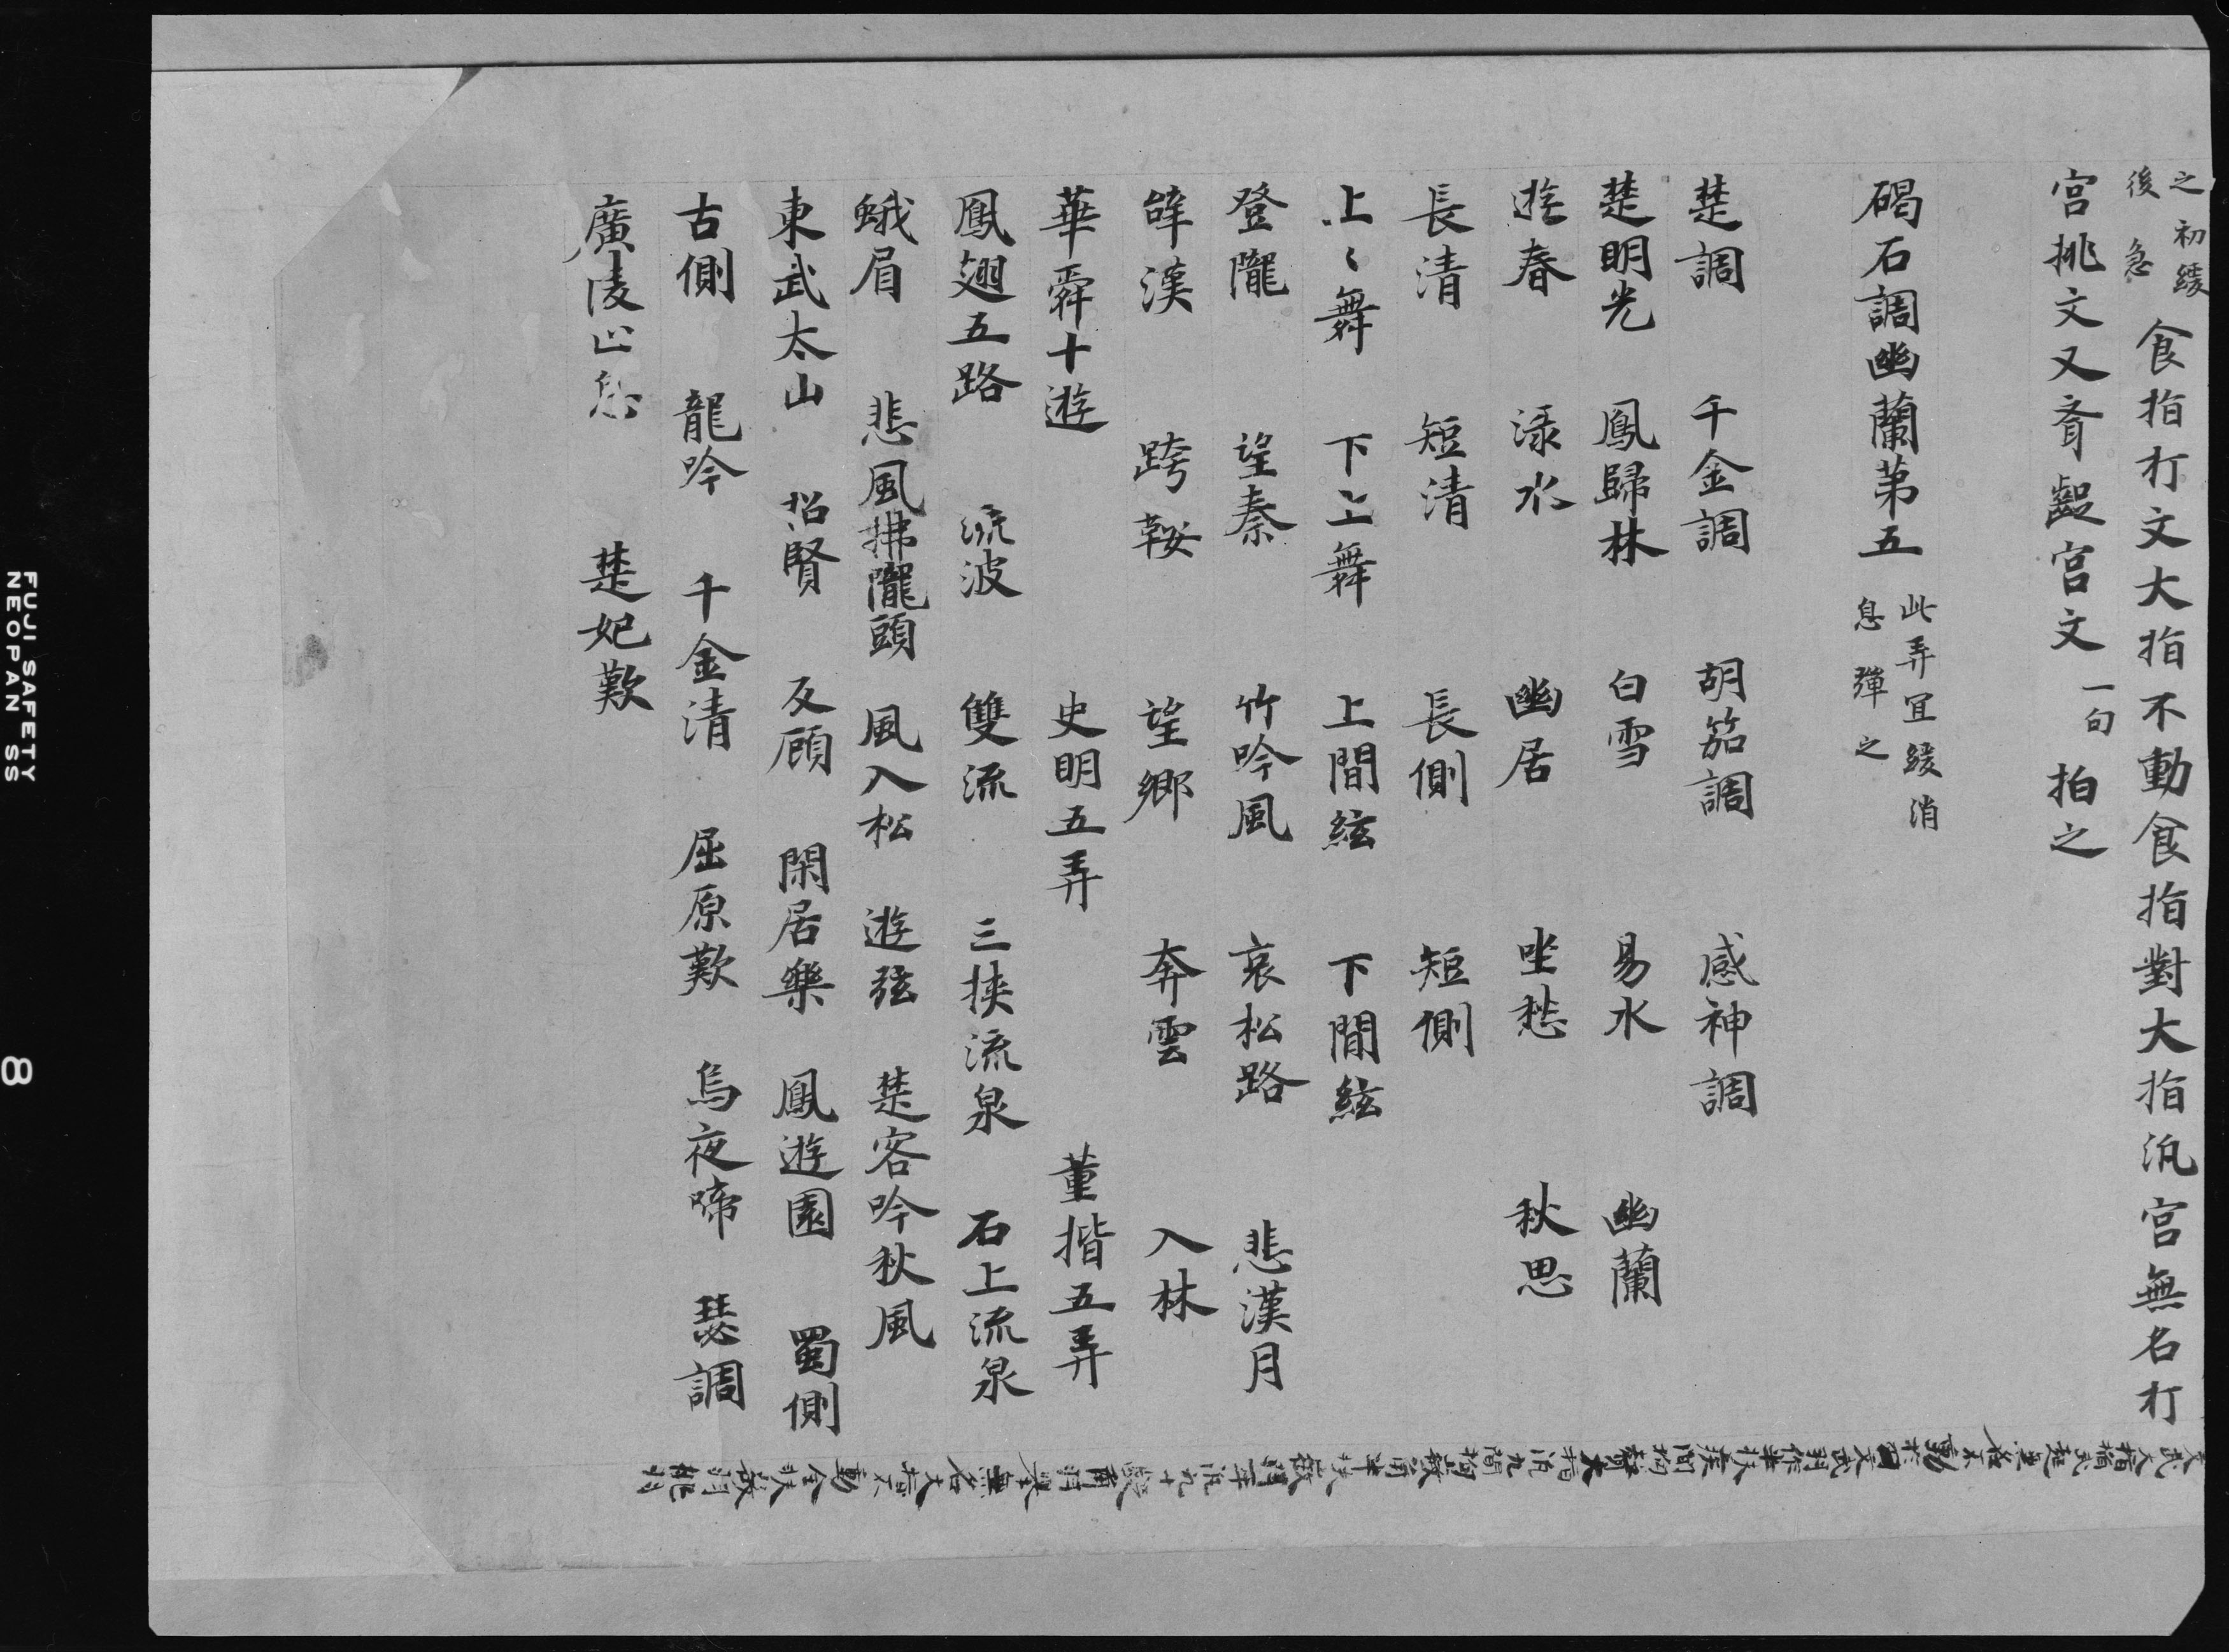 之初緩
後急
食指打文大指不動食指對大指汎宮無名打
宮挑文又齊齪宮文一句拍之
碣石調幽蘭第五
此弄宜緩消
息彈之
楚調 千金調 胡笳調 感神調
楚明光 鳳歸林 白雪 易水 幽蘭
遊春 淥水 幽居 坐愁 秋思
長清 短清 長側 短側
上〻舞 下上舞 上間絃 下間絃
登隴 望秦 竹吟風 哀松路 悲漢月
辞漢 跨鞍 望鄉 奔雲 入林
華舜十遊 史明五弄 董揩五弄
鳳翅五路 流波 雙流 三挾流泉 石上流泉
蛾眉 悲風拂隴頭 風入松 遊弦 楚客吟秋風
東武太山 招賢 反顧 閑居樂 鳳遊園 蜀側
古側 龍吟 千金清 屈原歎 烏夜啼 瑟調
廣陵止息 楚妃歎
FUJI SAFETY
NEOPAN SS
8